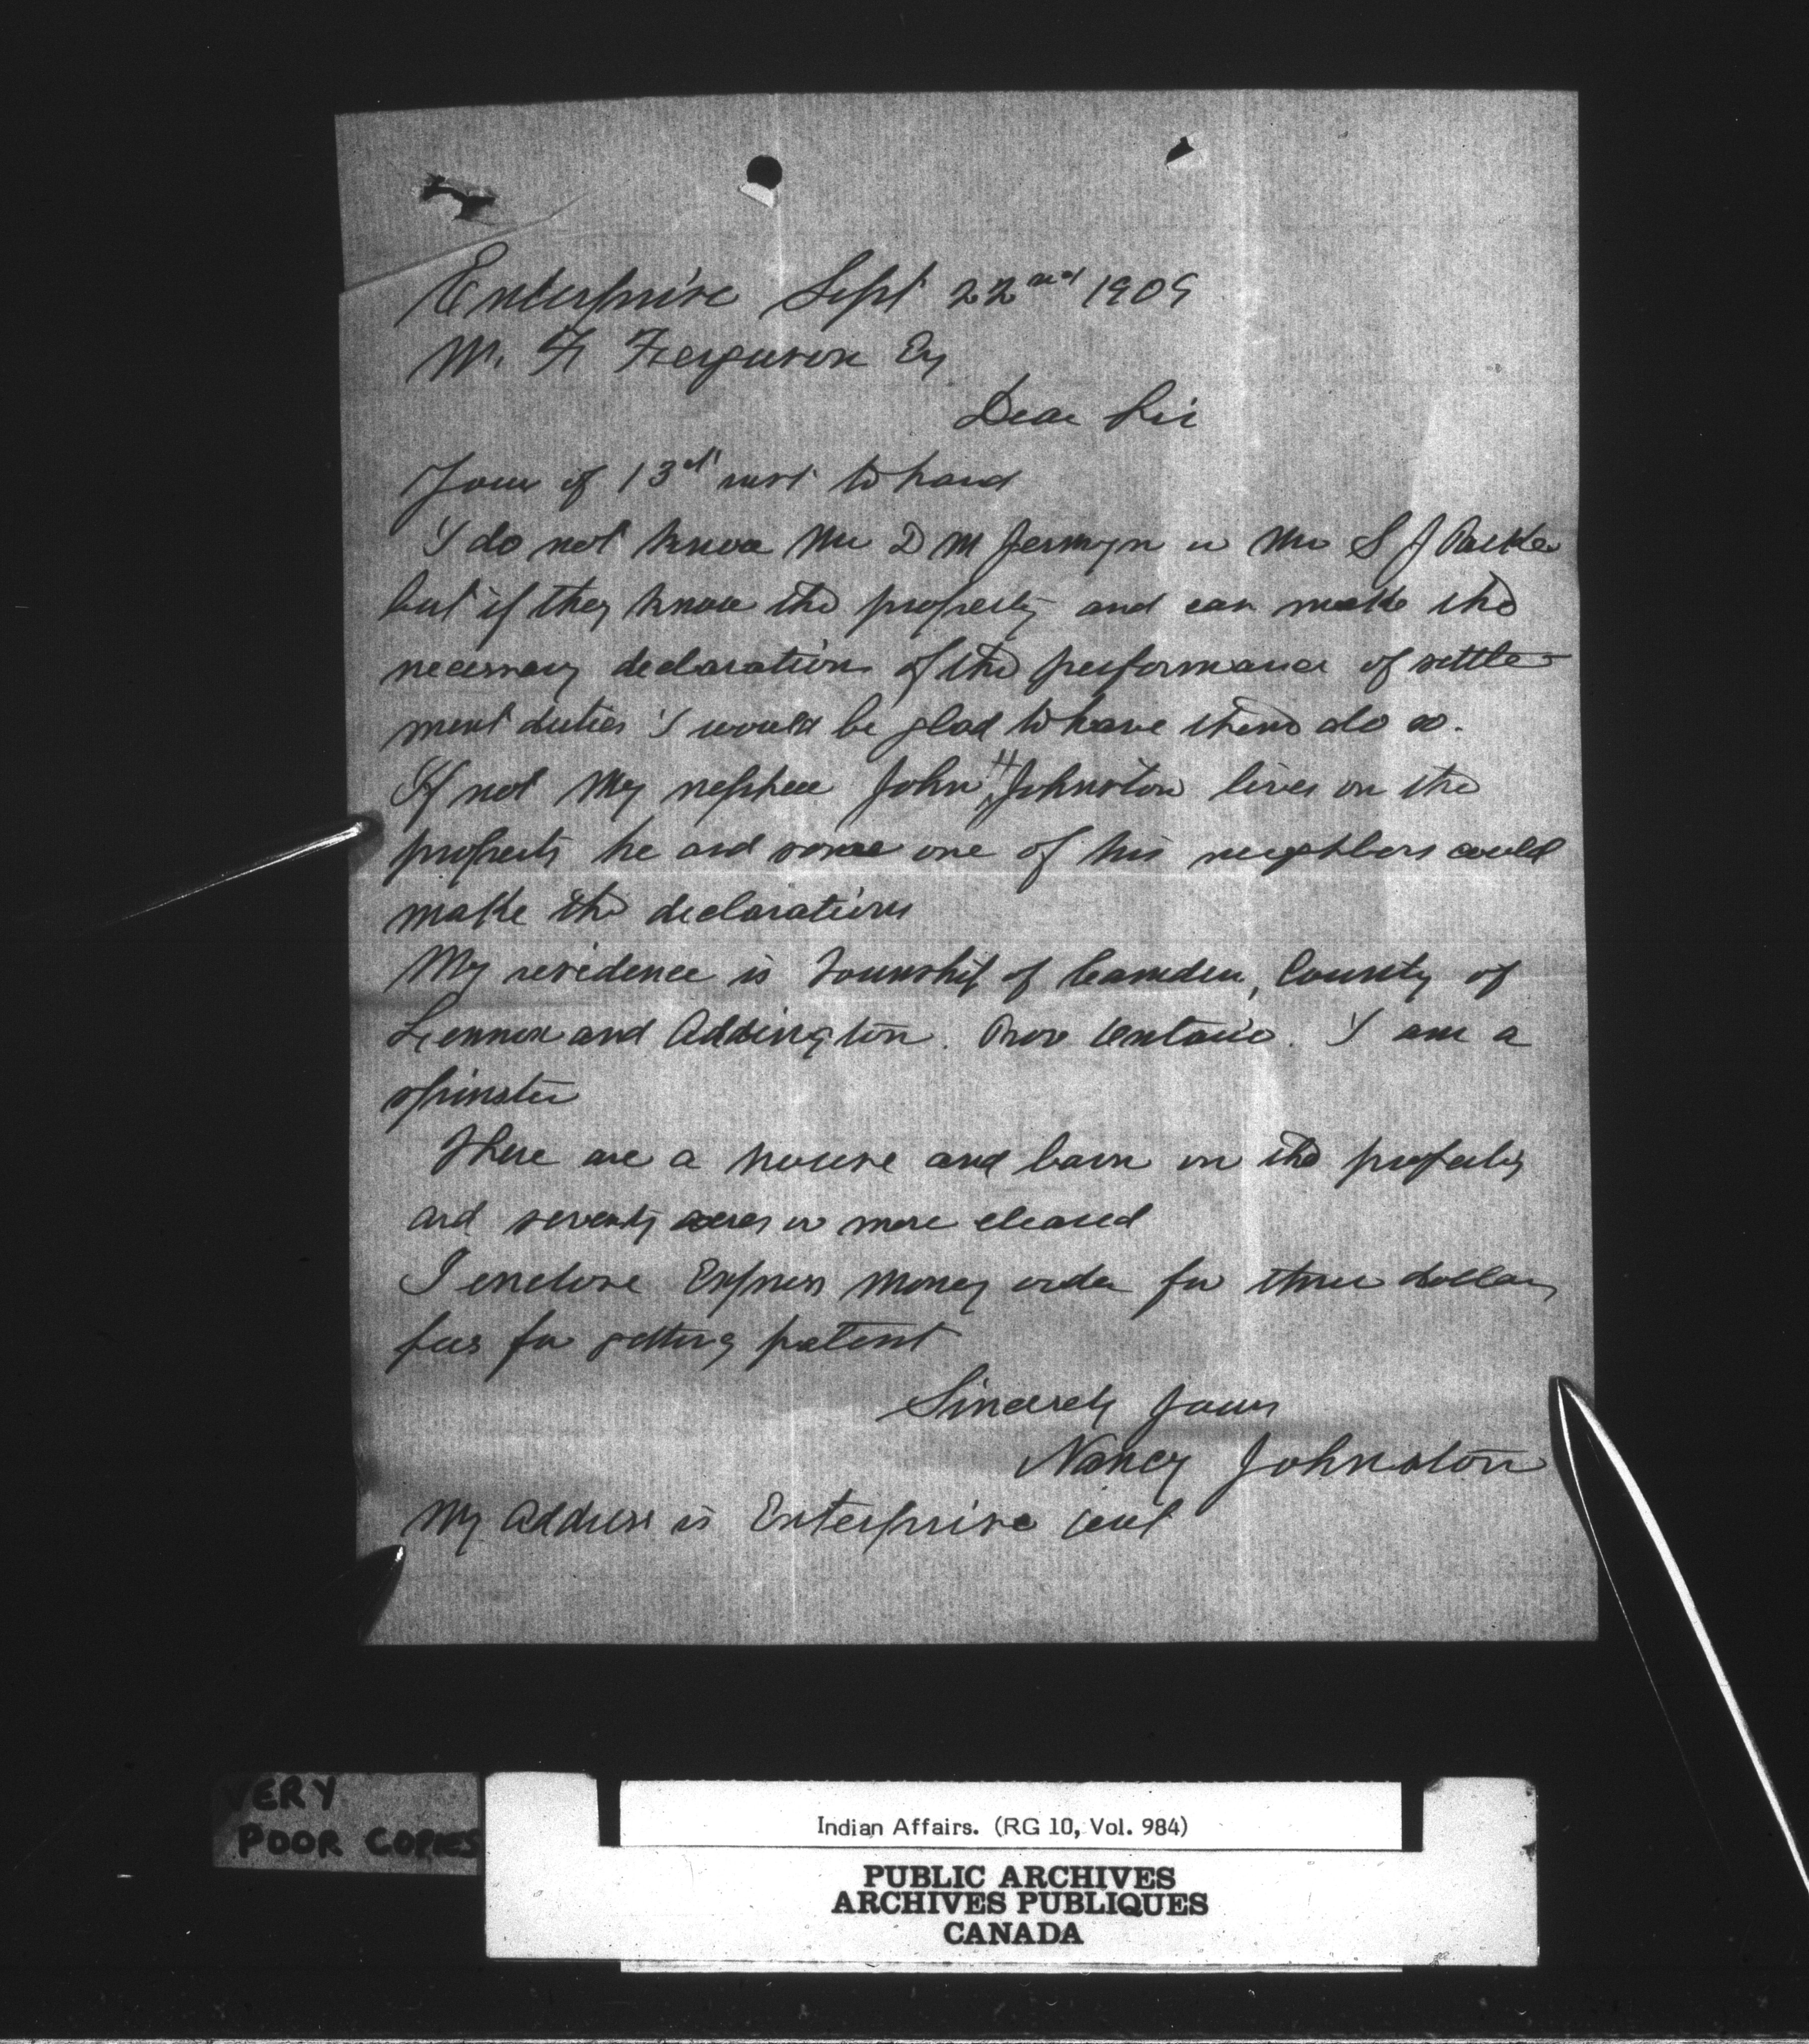 Enterprise Sept 22nd 1909
W. F Ferguson Esq
Dear Sir
Yours of 13th inst to hand
I do not know Mr D M Jermyn or Mr S J Parke
but if they know the property and can make the
necessary declarations of the performance of settle-
ment duties I would be glad to have them do so.
If not My nephew John H Johnston lives on the
property he and some one of his neighbors could
make the declarations
My residence is Township of Camden, County of
Lennox and Addington. Prov Ontario. I am a
spinster
There are a house and barn on the property
and seventy acres or more cleared
I enclose Express Money order for three dollars
fees for getting patent
Sincerely yours
Nancy Johnston
My address is Enterprise Ont
VERY
POOR COPIES
Indian Affairs. (RG 10, Vol. 984)
PUBLIC ARCHIVES
ARCHIVES PUBLIQUES
CANADA